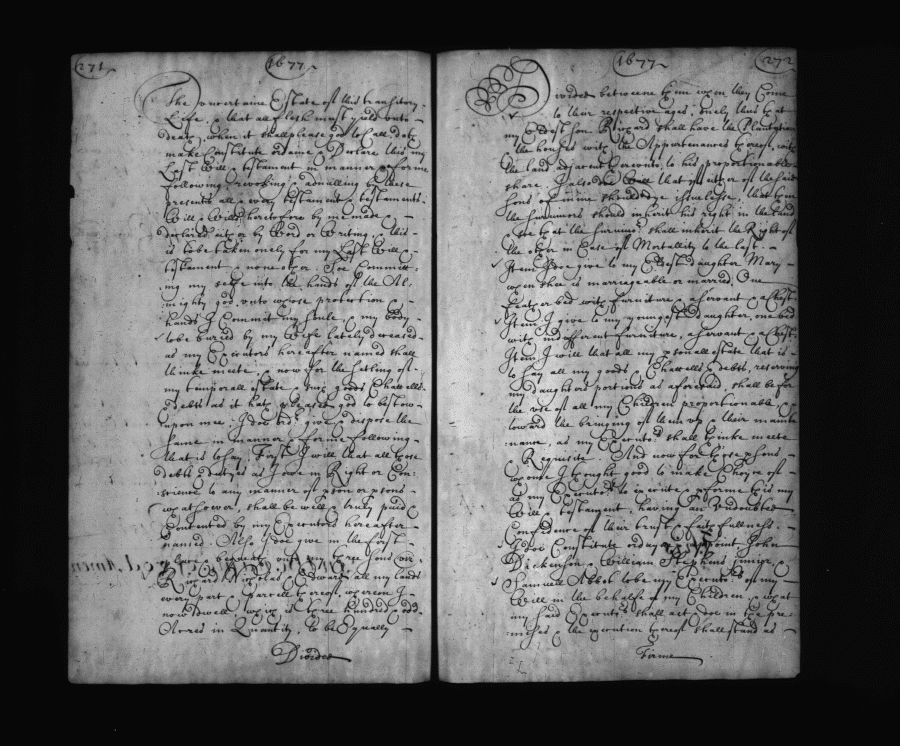 271
1677
The uncertaine Estate of this transitory
Life, & that all flesh must yeild unto
death, when it shall please god to call doe
make Constitute ordaine & Declare this my
Last Will & testament in manner & forme
following revoking & adnulling by these
presents all & every testament & testaments
Will & Wills heretofore by me made &
declared either by Word or Writing, & this
is to be taken onely for my Last Will &
testament & none other. I doe Committ
ing my selfe into the hands of the Al
mighty god, unto whose protection &
hands I Commit my soule, & my Body
to be buried by my Wife lately deceased
as my Executors hereafter named shall
thinke meete, & now for the setling of
my temporall estate & such goods Chattells
& debts as it hath pleased god to bestow
upon mee, I doe give & dispose the
same in manner & forme following
that is to say, First I will that all those
debts & dutyes as I owe in Right or Con
science to any manner of pson or psons
whatsoever, shall be well & truly paid
Contented by my Executors hereafter
named. Also I doe give in the first
bequest unto my three sons
Richard Nicolas & Edward all my lands
every part & parcell thereof, whereon I
now dwell, wch is three hundred & odd
Acres in Quantity, to be Equally
Divided
1677
272
Divided betweene them when they Come
to their respective ages, onely this that
my Eldest son Richard shall have the Plantation
& the houses with the Appurtenances thereof, with
the land adjacent thereunto to his proportionable
share. I also Will that if either of the said
sons of mine should dye issulesse, that then
the survivors should inherit his right in the land
& that the survivor shall inherit the Right of
the other in Case of Mortallity to the last.
Item I doe give to my Eldest daughter Mary
when shee is marriageable or married, One
feather bed with furniture, a servant & a Chest
Item I give to my youngest daughter, one bed
with indifferent furniture, a servant & a Chest,
Item I will that all my psonall estate that is
to say all my goods Chattells & debts, reserving
my daughters portions as aforesd, shall be for
the use of all my Children proportionable &
toward the bringing of them up & their mainte
nance, as my Executrs shall thinke meete
& Requisite. And now for those psons
whome I thought good to make Choyce of
as my Executrs to execute & pforme this my
Will & testament, having an undoubted
Confidence of their trust & faithfullness.
I doe Constitute ordayne & appoint John
Dickenson & William Stephens junior &
Samuell Abbot to be my Executrs of my
Will in the behalfe of my Children & what
my said Executrs shall act & doe in the pre
mises & the execution thereof shall stand as
Firme